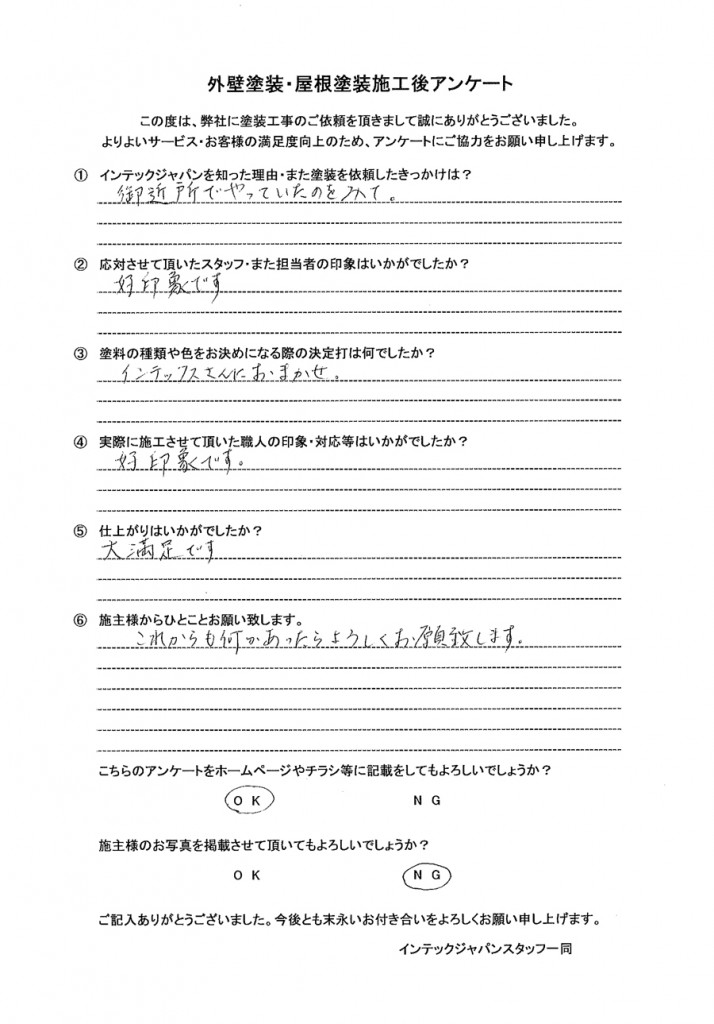 外壁塗装・屋根塗装施工後アンケート
この度は、弊社に塗装工事のご依頼を頂きまして誠にありがとうございました。
よりよいサービス・お客様の満足度向上のため、アンケートにご協力をお願い申し上げます。
① インテックジャパンを知った理由・また塗装を依頼したきっかけは？
御近所でやっていたのをみて。
② 応対させて頂いたスタッフ・また担当者の印象はいかがでしたか？
好印象です
③ 塗料の種類や色をお決めになる際の決定打は何でしたか？
インテックスさんにおまかせ。
④ 実際に施工させて頂いた職人の印象・対応等はいかがでしたか？
好印象です。
⑤ 仕上がりはいかがでしたか？
大満足です
⑥ 施主様からひとことお願い致します。
これからも何かあったらよろしくお願致します。
こちらのアンケートをホームページやチラシ等に記載をしてもよろしいでしょうか？
ＯＫ ＮＧ
施主様のお写真を掲載させて頂いてもよろしいでしょうか？
ＯＫ ＮＧ
ご記入ありがとうございました。今後とも末永いお付き合いをよろしくお願い申し上げます。
インテックジャパンスタッフ一同